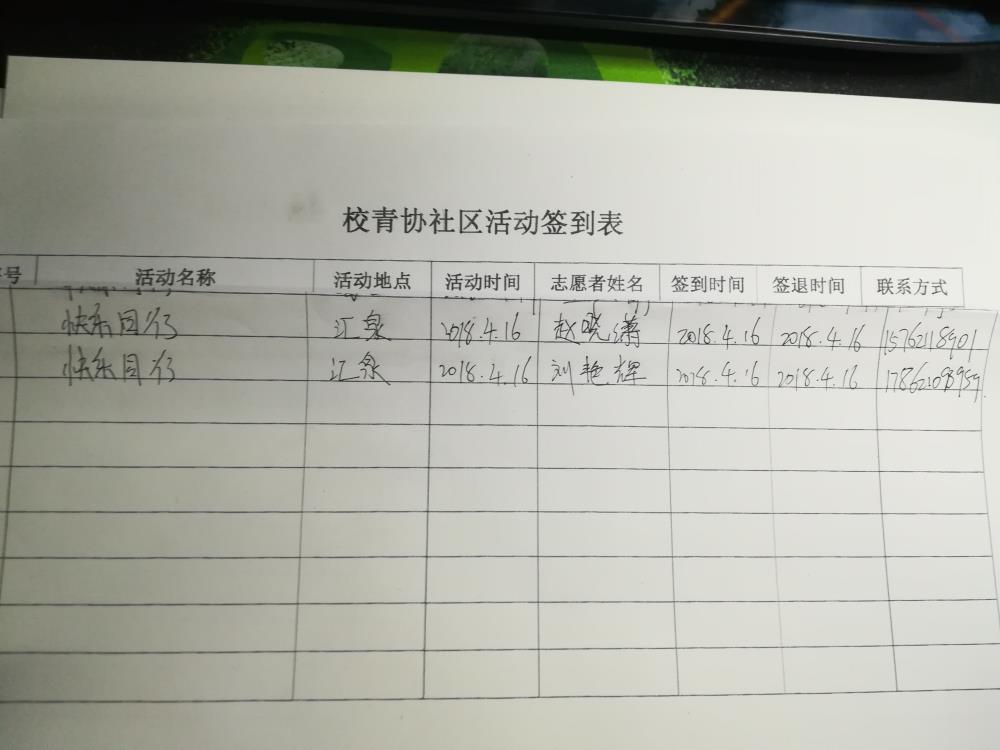 校青协社区活动签到表
号 活动名称 活动地点 活动时间 志愿者姓名 签到时间 签退时间 联系方式
快乐同行 汇泉 2018.4.16 赵晓潇 2018.4.16 2018.4.16 15762118901
快乐同行 汇泉 2018.4.16 刘艳辉 2018.4.16 2018.4.16